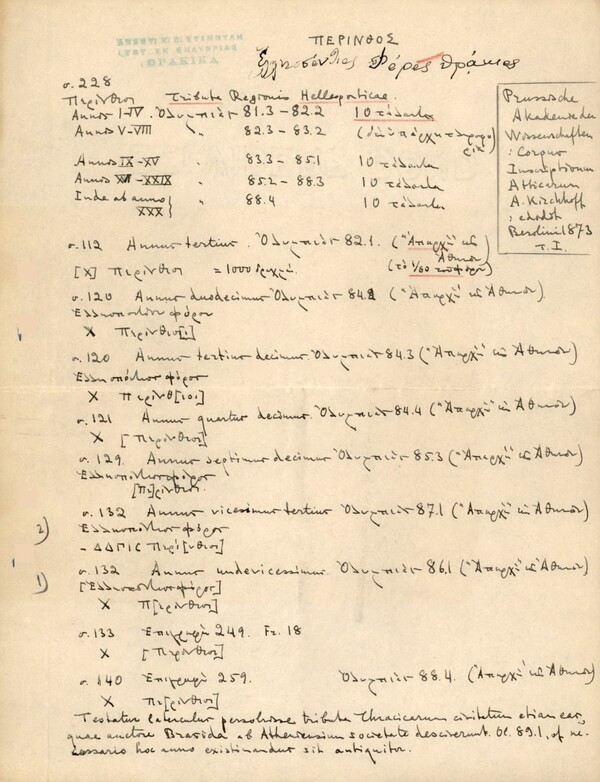 ΠΕΡΙΝΘΟΣ
ΘΡΑΚΙΚΑ
Φόρος Θράκης
σ. 228
Περίνθιοι Tributa Regionis Hellesponticae.
Annis I-IV. Ὀλυμπιὰς 81.3 - 82.2 10 τάλαντα
Annis V-VIII " 82.3 - 83.2
Annis IX-XV " 83.3 - 85.1 10 τάλαντα
Annis XVI-XXIX " 85.2 - 88.3 10 τάλαντα
Inde ab anno XXX } " 88.4 10 τάλαντα
Preussische
Akademie der
Wissenschaften
: Corpus
Inscriptionum
Atticarum
A. Kirchhoff
Berolini 1873
T. I.
σ. 112 Annus tertius. Ὀλυμπιὰς 82.1. ("Ἀπαρχὴ" ἐξ Ἀθηνῶν)
[X] Περίνθιοι = 1000 δραχμαὶ (τὸ 1/60 τοῦ φόρου)
σ. 120 Annus duodecimus Ὀλυμπιὰς 84.2 ("Ἀπαρχὴ" ἐξ Ἀθηνῶν).
Ἑλλησπόντιος φόρος
X Περίνθιο[ι]
σ. 120 Annus tertius decimus. Ὀλυμπιὰς 84.3 ("Ἀπαρχὴ" ἐξ Ἀθηνῶν)
Ἑλλησπόντιος φόρος
X Περίνθ[ιοι]
σ. 121 Annus quartus decimus. Ὀλυμπιὰς 84.4 ("Ἀπαρχὴ" ἐξ Ἀθηνῶν)
X [Περίνθιοι]
σ. 129. Annus septimus decimus Ὀλυμπιὰς 85.3 ("Ἀπαρχὴ" ἐξ Ἀθηνῶν)
Ἑλλησπόντιος φόρος
[Πε]ρίνθιοι.
σ. 132 Annus vicesimus tertius Ὀλυμπιὰς 87.1 ("Ἀπαρχὴ" ἐξ Ἀθηνῶν)
2) Ἑλλησπόντιος φόρος
- ΔΔΓΙC Περί[νθιοι]
σ. 132 Annus undevicessimus. Ὀλυμπιὰς 86.1 ("Ἀπαρχὴ" ἐξ Ἀθηνῶν)
1) [Ἑλλησπόντιος φόρος]
X Π[ερίνθιοι]
σ. 133 Ἐπιγραφὴ 249. Fr. 18
X [Περίνθιοι]
σ. 140 Ἐπιγραφὴ 259. Ὀλυμπιὰς 88.4. (Ἀπαρχὴ ἐξ Ἀθηνῶν)
X Πε[ρίνθιοι]
Testatur laterculus persolvisse tributa Thracicarum civitatum etiam eas,
quae auctore Brasida ab Atheniensium societate desciverunt Ol. 89.1, ut ne-
cessario hoc anno existimandus sit antiquior.